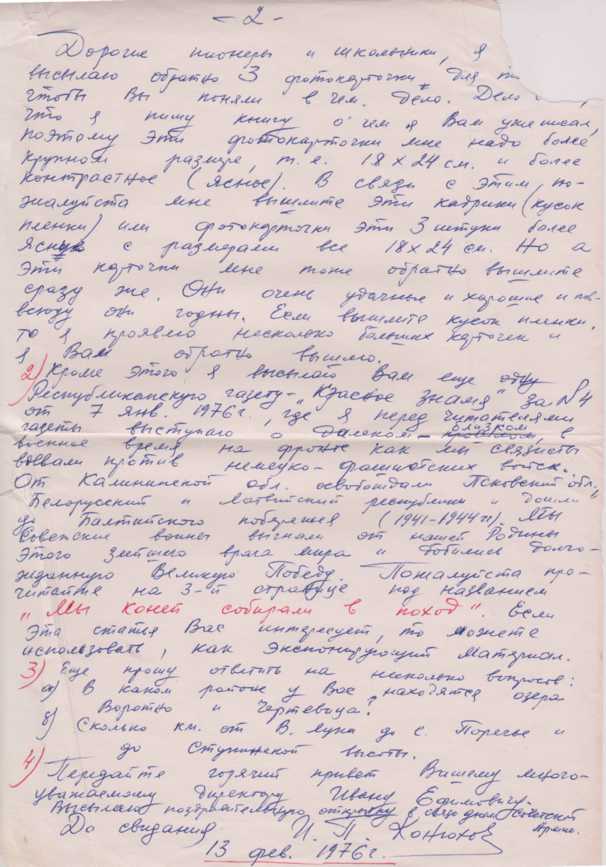 - 2 -
Дорогие пионеры и школьники, я
высылаю обратно 3 фотокарточки для
чтобы Вы поняли в чем дело. Дело
что я пишу книгу о чем я Вам уже писал,
поэтому эти фотокарточки мне надо более
крупном размере, т.е. 18 х 24 см. и более
контрастное (ясные). В связи с этим, по-
жалуйста мне вышлите эти кадрики (кусок
пленки) или фотокарточки эти 3 штуки более
ясные с размерами все 18х24 см. Но а
эти карточки мне тоже обратно вышлите
сразу же. Они очень удачные и хорошие и
они годны. Если вышлите кусок пленки,
то я проявлю несколько больших карточек и
я Вам обратно вышлю.
2) Кроме этого я высылаю Вам еще одну
Республиканскую газету- "Красное знамя" за №4
от 7 янв. 1976г, где я перед читателями
газеты выступаю о далеком - близком, в
военное время на фронте как мы связисты
воевали против немецко-фашистских войск.
От Калининской обл. освобождали Псковский обл.,
Белорусский и Латвийский республики и дошли
до Балтийского побережья (1941-1944 гг). Мы
Советские воины выгнали от нашей Родины
этого злейшего врага мира и добились долго-
жданную Великую Победу. Пожалуйста про-
читайте на 3-й странице под названием
"Мы коней собирали в поход". Если
эта статья Вас интересует, то можете
использовать, как экспонирующий материал.
3) Еще прошу ответить на несколько вопросов:
а) В каком районе у Вас находятся озера
Воротно и Чертевица?
б) Сколько км. от В. Луки до с. Поречье и
до Ступинской высоты.
4) Передайте горячий привет Вашему много-
уважаемому директору Ивану Ефимовичу.
Высылаю поздравительную открытку в связи днем Советской
Армии.
До свидания И. П. Конюхов
13 фев. 1976г.